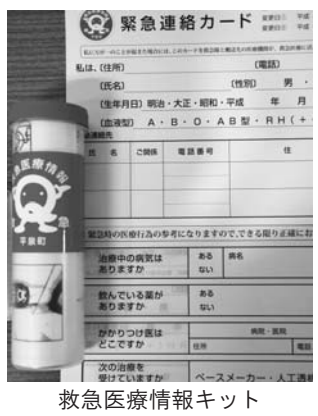 緊急連絡カード
変更日① 平成
変更日② 平成
私は、(住所) (電話)
(氏名) (性別) 男・
(生年月日) 明治・大正・昭和・平成 年 月
(血液型) A・B・O・AB型・RH(+
急連絡先
氏 名 ご関係 電話番号 住
緊急時の医療行為の参考になりますので、できる限り正確にお
治療中の病気は
ありますか
ある
ない
病名
飲んでいる薬が
ありますか
ある
ない
かかりつけ医は
どこですか
病院・医院
住所
電話
次の治療を
受けていますか
ペースメーカー・人工透
急医療情報
救急
平泉町
救急医療情報キット